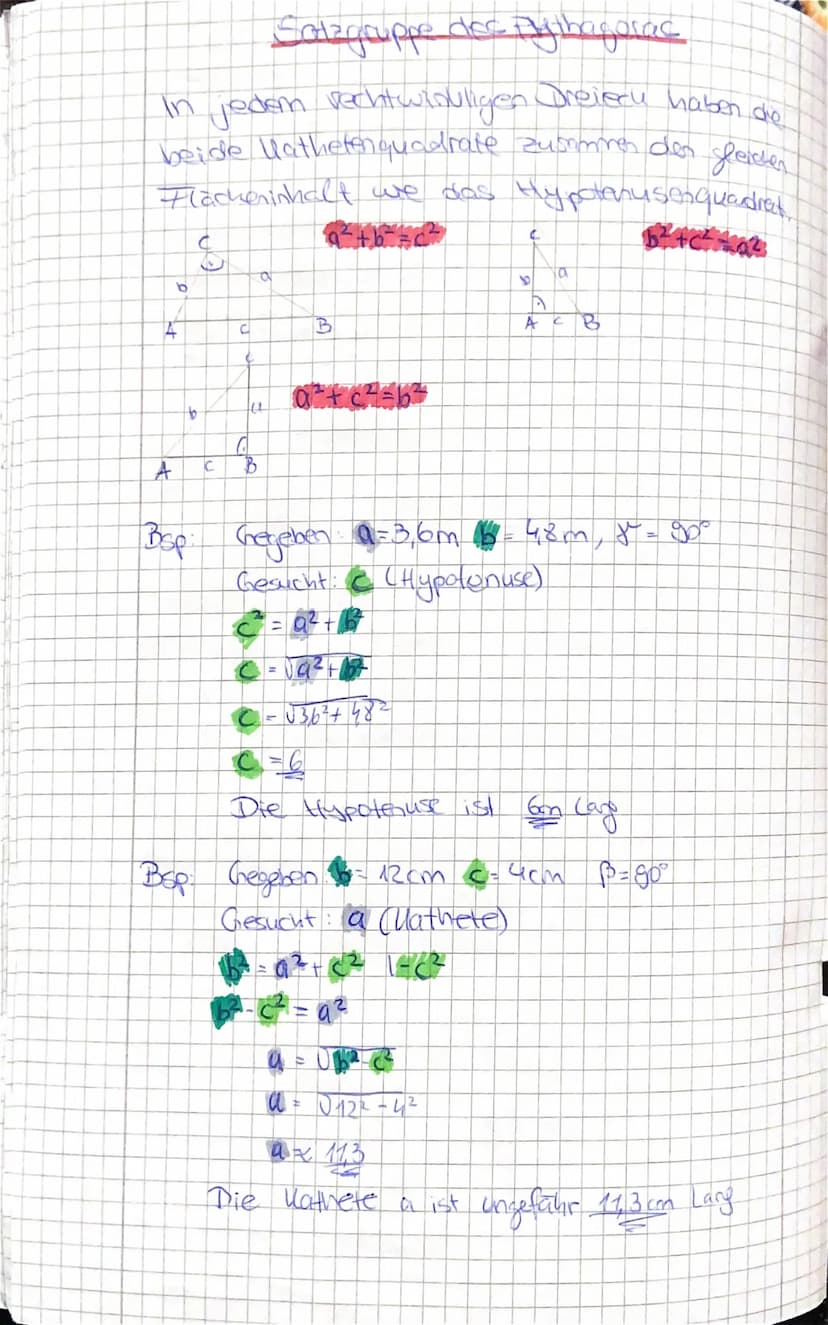 Satzgruppe des Pythagoras
In jedem rechtwinkligen Dreieck haben die
beide Kathetenquadrate zusammen den gleichen
Flächeninhalt we das Hypotenusenquadrat.
a²+b²=c²
C
b
a
A
c
B
b²+c²=a²
C
b
a
A c B
a²+c²=b²
C
b
a
A c B
Bsp: Gegeben: a=3,6m b= 4,8m, γ= 90°
Gesucht: c (Hypotenuse)
c² = a²+b²
c = √a²+b²
c = √3,6²+4,8²
c = 6
Die Hypotenuse ist 6m lang
Bsp: Gegeben: b= 12cm c= 4cm β=90°
Gesucht: a (Kathete)
b² = a²+c² |-c²
b²-c² = a²
a = √b²-c²
a = √12²-4²
a ≈ 11,3
Die Kathete a ist ungefähr 11,3cm lang